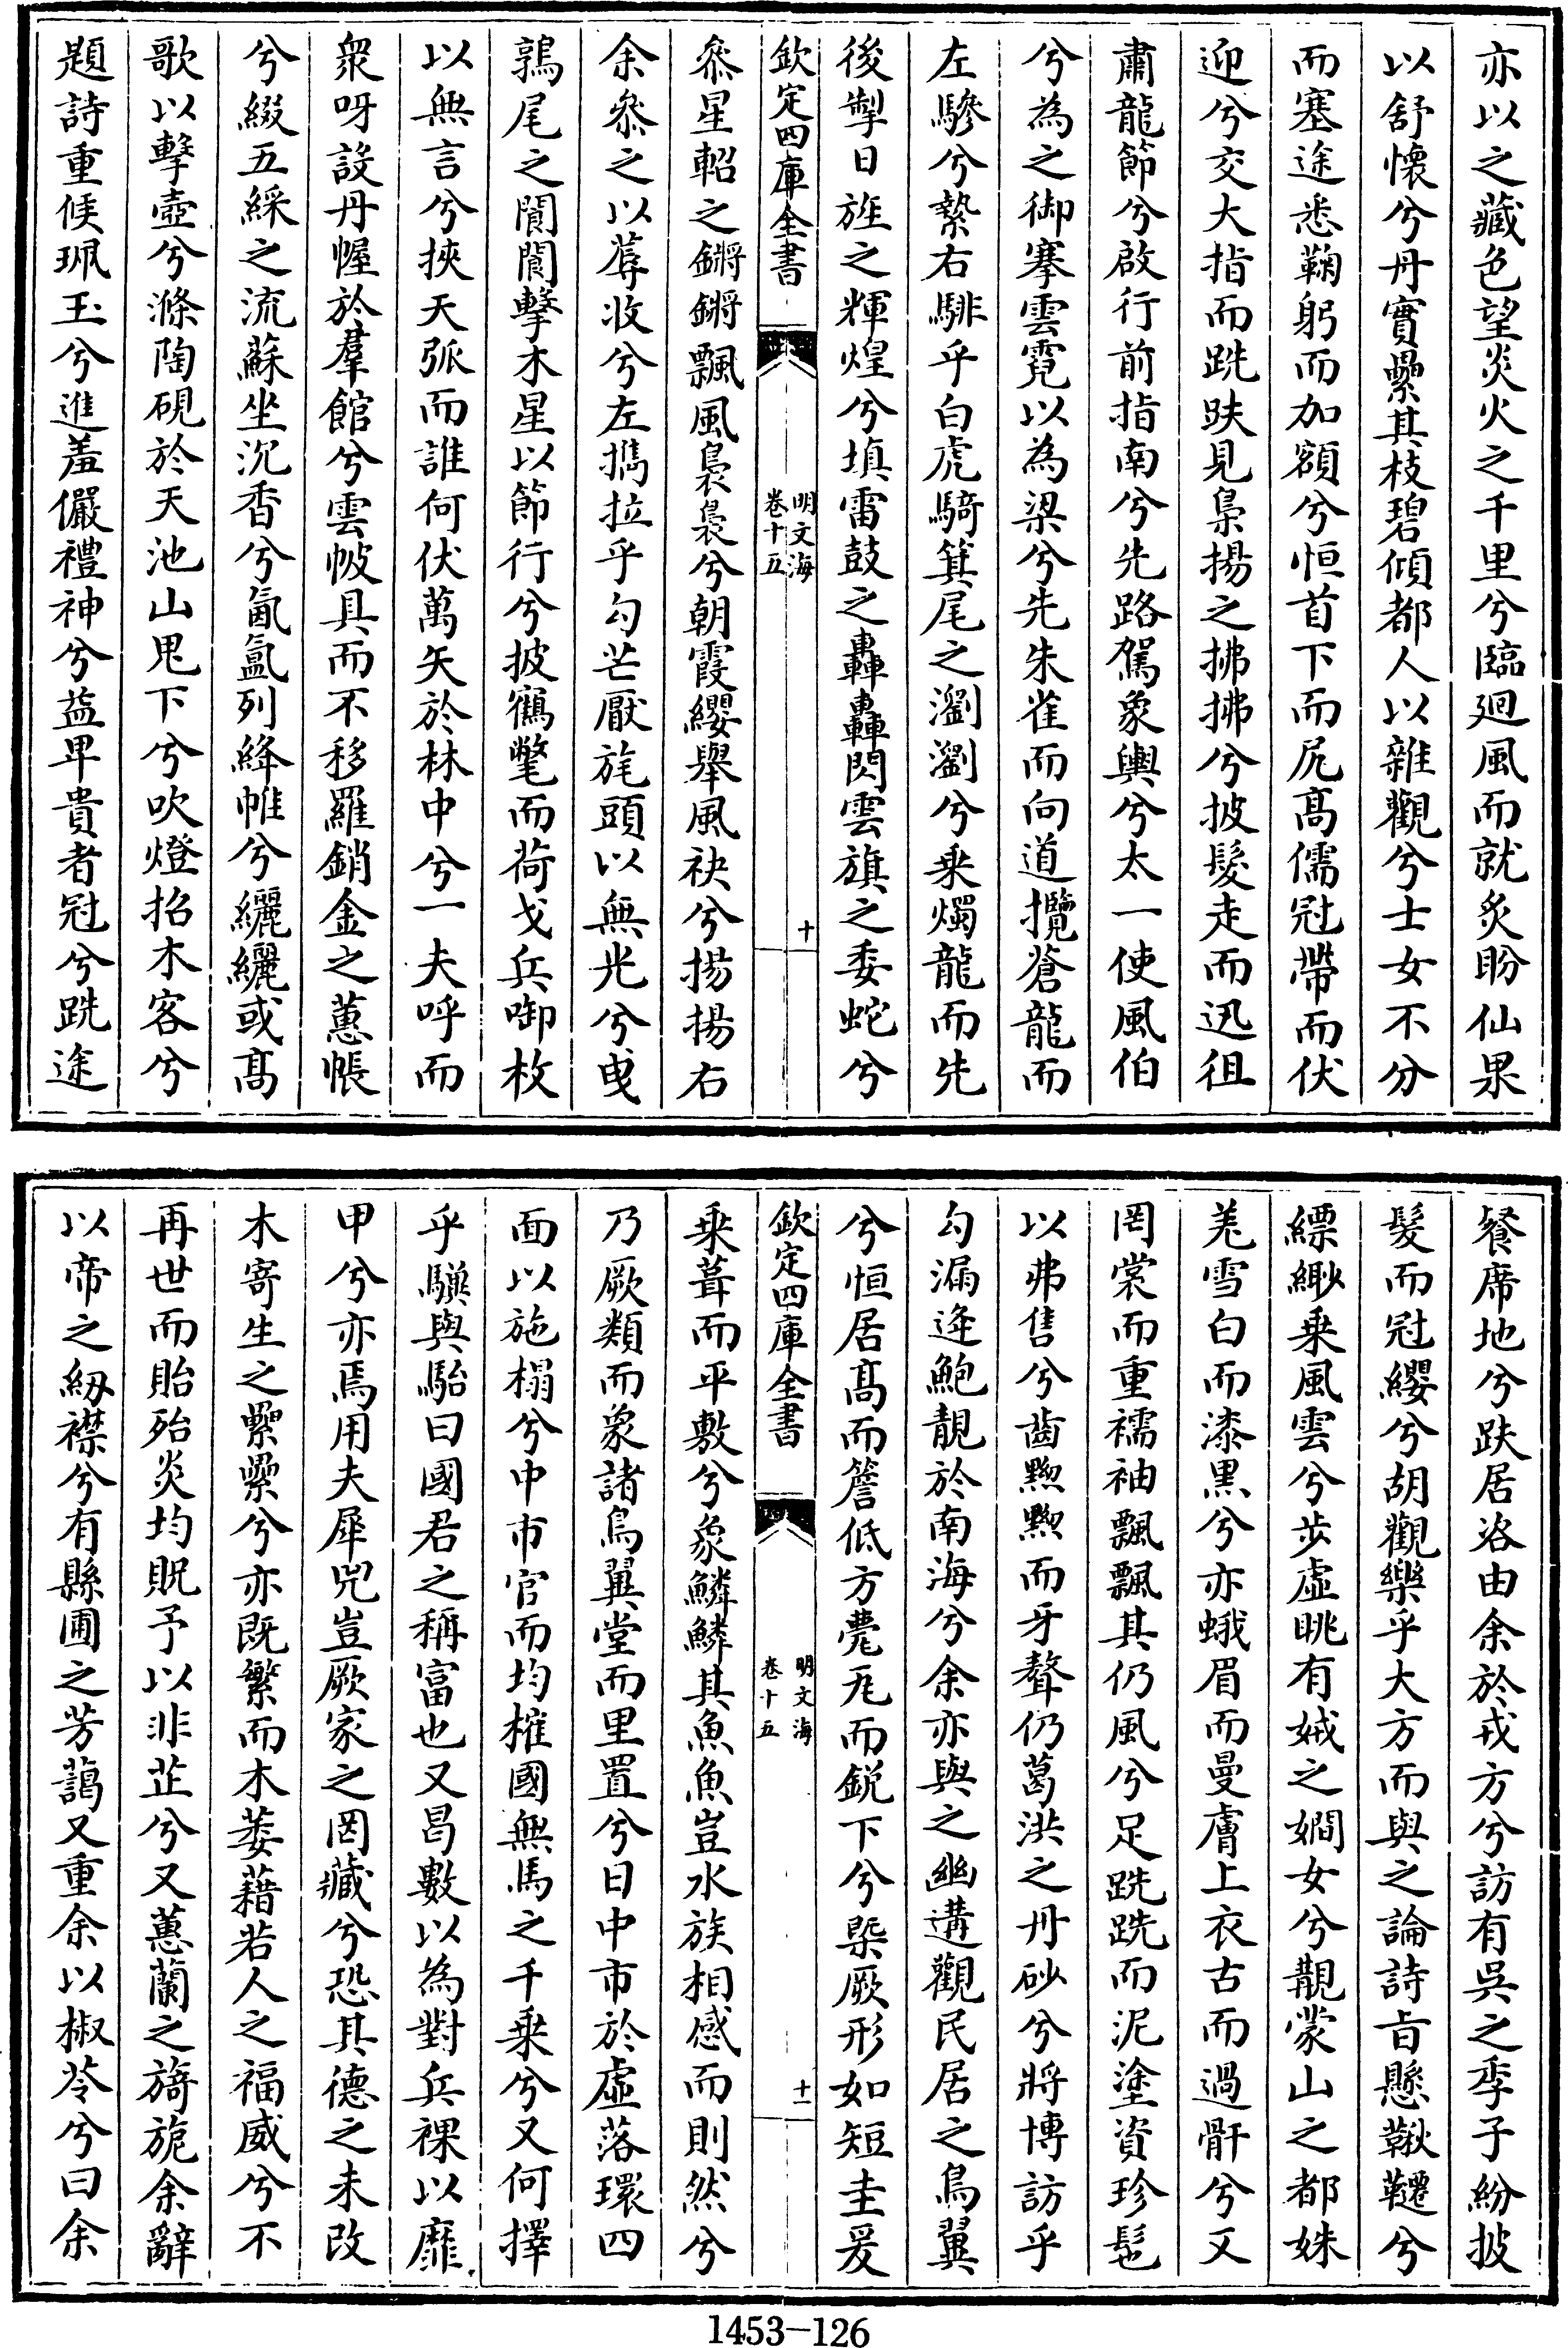 亦以之藏色望炎火之千里兮臨廻風而就炙盼仙果
以舒懷兮丹實纍其枝碧傾都人以雜觀兮士女不分
而塞途悉鞠躬而加額兮恒首下而尻髙儒冠帶而伏
迎兮交大指而跣趺見梟揚之拂拂兮披髮走而迅徂
肅龍節兮啟行前指南兮先路駕象輿兮太一使風伯
兮為之御搴雲霓以為梁兮先朱雀而向道攬蒼龍而
左驂兮縶右騑乎白虎騎箕尾之瀏瀏兮乗燭龍而先
後掣日旌之輝煌兮填雷鼓之轟轟閃雲旗之委蛇兮
欽定四庫全書
明文海
卷十五
十
叅星軺之鏘鏘飄風裊裊兮朝霞纓舉風袂兮揚揚右
余叅之以蓐收兮左攜拉乎勾芒厭旄頭以無光兮曳
鶉尾之閬閬擊木星以節行兮披鶴氅而荷戈兵啣枚
以無言兮挾天弧而誰何伏萬矢於林中兮一夫呼而
衆呀設丹幄於羣館兮雲帔具而不移羅銷金之蕙帳
兮綴五綵之流蘇坐沉香兮氤氲列絳帷兮纚纚或髙
歌以擊壺兮滌陶硯於天池山鬼下兮吹燈招木客兮
題詩重候珮玉兮進羞儼禮神兮益卑貴者冠兮跣途
餐席地兮趺居洛由余於戎方兮訪有吳之季子紛披
髮而冠纓兮胡觀樂乎大方而與之論詩旨懸鞦韆兮
縹緲乗風雲兮步虛眺有娀之嫺女兮覯蒙山之都姝
羌雪白而漆黒兮亦蛾眉而曼膚上衣古而過骭兮又
罔裳而重襦袖飄飄其仍風兮足跣跣而泥塗資珍髢
以弗售兮齒黮黮而牙聱仍葛洪之丹砂兮將博訪乎
勾漏逄鮑靚於南海兮余亦與之幽遘觀民居之鳥翼
兮恒居髙而簷低方甍旡而鋭下兮槩厥形如短圭爰
欽定四庫全書
明文海
卷十五
十一
乗葺而平敷兮象鱗鱗其魚魚豈水族相感而則然兮
乃厥類而象諸鳥翼堂而里置兮日中市於虛落環四
面以施榻兮中市官而均榷國無馬之千乗兮又何擇
乎驥與駘曰國君之稱富也又曷數以為對兵裸以靡
甲兮亦焉用夫犀兕豈厥家之罔藏兮恐其德之未改
木寄生之纍纍兮亦既繁而木萎藉若人之福威兮不
再世而貽殆炎均貺予以非芷兮又蕙蘭之旖旎余辭
以帝之紉襟兮有縣圃之芳藹又重余以椒苓兮曰余
1453—126